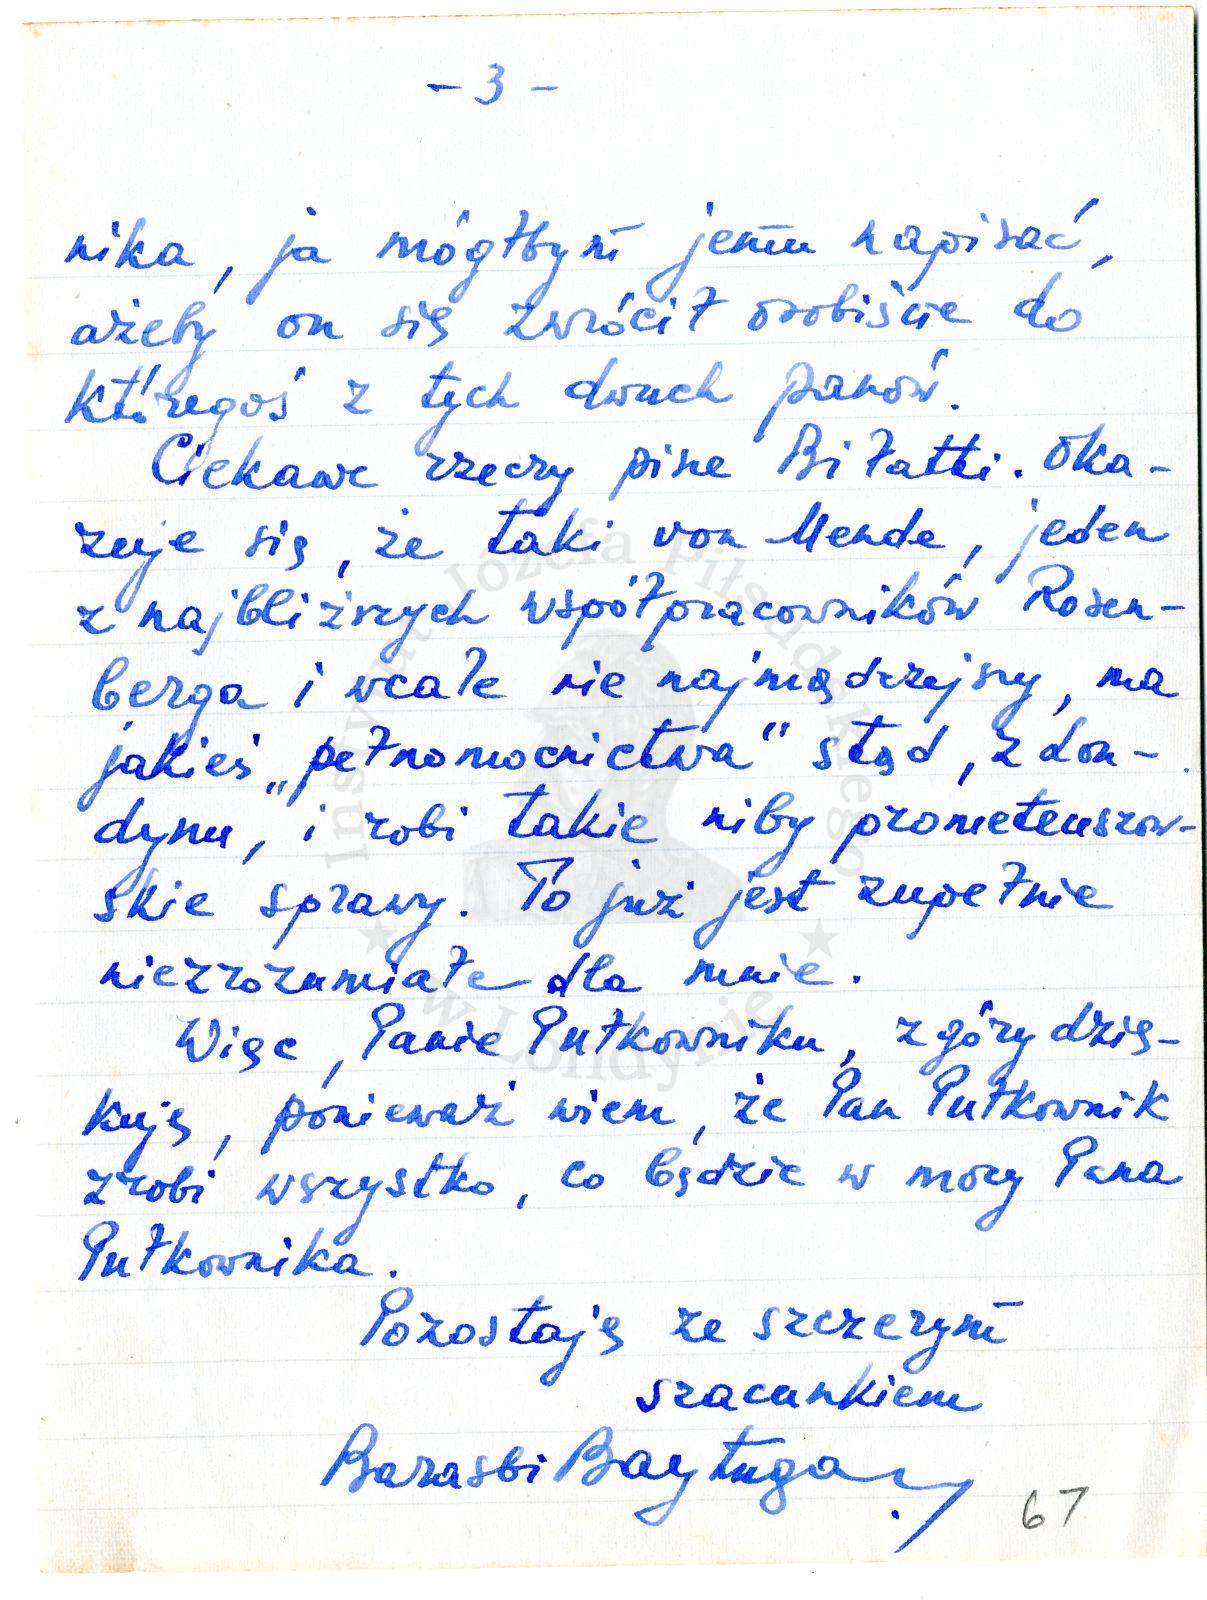 - 3 -
nika, ja mógłbym jemu napisać,
ażeby on się zwrócił osobiście do
któregoś z tych dwuch panów.
Ciekawe rzeczy pisze Biłatti. Oka-
zuje się, że taki von Mende, jeden
z najbliższych współpracowników Rosen-
berga i wcale nie najmądrzejszy, ma
jakieś „pełnomocnictwa“ stąd, z Lon-
dynu, i robi takie niby prometeuszow-
skie sprawy. To już jest zupełnie
niezrozumiałe dla mnie.
Więc, Panie Pułkowniku, z góry dzię-
kuję, ponieważ wiem, że Pan Pułkownik
zrobi wszystko, co będzie w mocy Pana
Pułkownika.
Pozostaję ze szczerym
szacunkiem
Barasbi Baytugan
67
Instytut Józefa Piłsudskiego
w Londynie